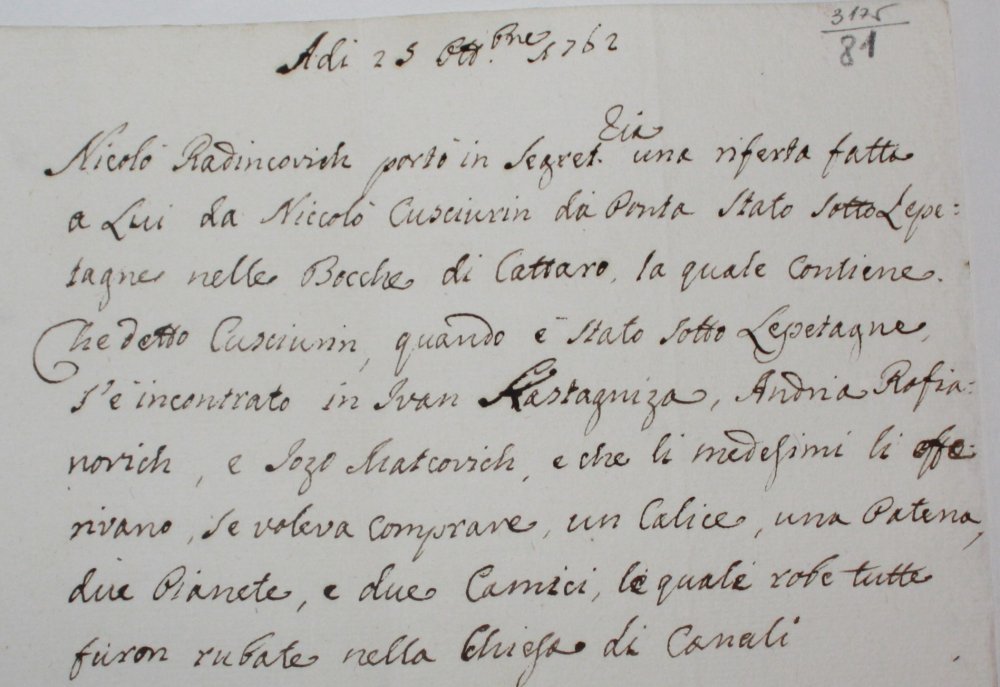 3175
81
Adi 25 Ott.bre 1762
Nicolò Radincovich portò in Segret.ria una riferta fatta
a Lui da Niccolò Cusciurin da Ponta Stato sotto Lepe=
tagne nelle Bocche di Cattaro, la quale Contiene.
Che detto Cusciurin, quando è Stato Sotto Lepetagne,
s'è incontrato in Ivan Kastagniza, Andria Rafia=
novich, e Jozo Matcovich, e che li medesimi li offe=
rivano, se voleva Comprare, un Calice, una Patena,
due Pianete, e due Camici, le quali robe tutte
furon rubate nella Chiesa di Canali